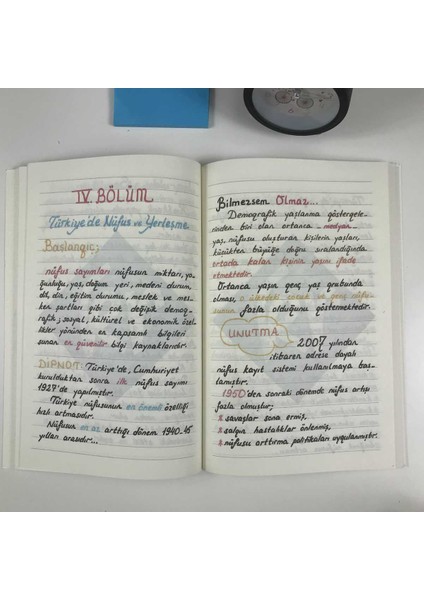 IV. BÖLÜM
Türkiye'de Nüfus ve Yerleşme
Başlangıç;
nüfus sayımları nüfusun miktarı, yo-
ğunluğu, yaş, doğum yeri, medeni durum,
dil, din, eğitim durumu, meslek ve mes-
ken şartları gibi çok değişik demog-
rafik, sosyal, kültürel ve ekonomik özel-
likler yönünden en kapsamlı bilgileri
sunan en güvenilir bilgi kaynaklarıdır.
DİPNOT: Türkiye'de, Cumhuriyet
kurulduktan sonra ilk nüfus sayımı
1927'de yapılmıştır.
Türkiye nüfusunun en önemli özelliği
hızlı artmasıdır.
Nüfusun en az arttığı dönem 1940-45
yılları arasıdır...
Bilmezsem Olmaz...
Demografik yaşlanma göstergele-
rinden biri olan ortanca medyan
yaş, nüfusu oluşturan kişilerin yaşları,
küçükten büyüğe doğru sıralandığında
ortada kalan kişinin yaşını ifade
etmektedir.
Ortanca yaşın genç yaş grubunda
olması, o ülkedeki çocuk ve genç nüfu-
sunun fazla olduğunu göstermektedir.
UNUTMA
2007 yılından
itibaren adrese dayalı
nüfus kayıt sistemi kullanılmaya baş-
lamıştır.
1950'den sonraki dönemde nüfus artışı
fazla olmuştur;
* savaşlar sona ermiş,
* salgın hastalıklar önlenmiş,
* nüfusu arttırma politikaları uygulanmıştır.